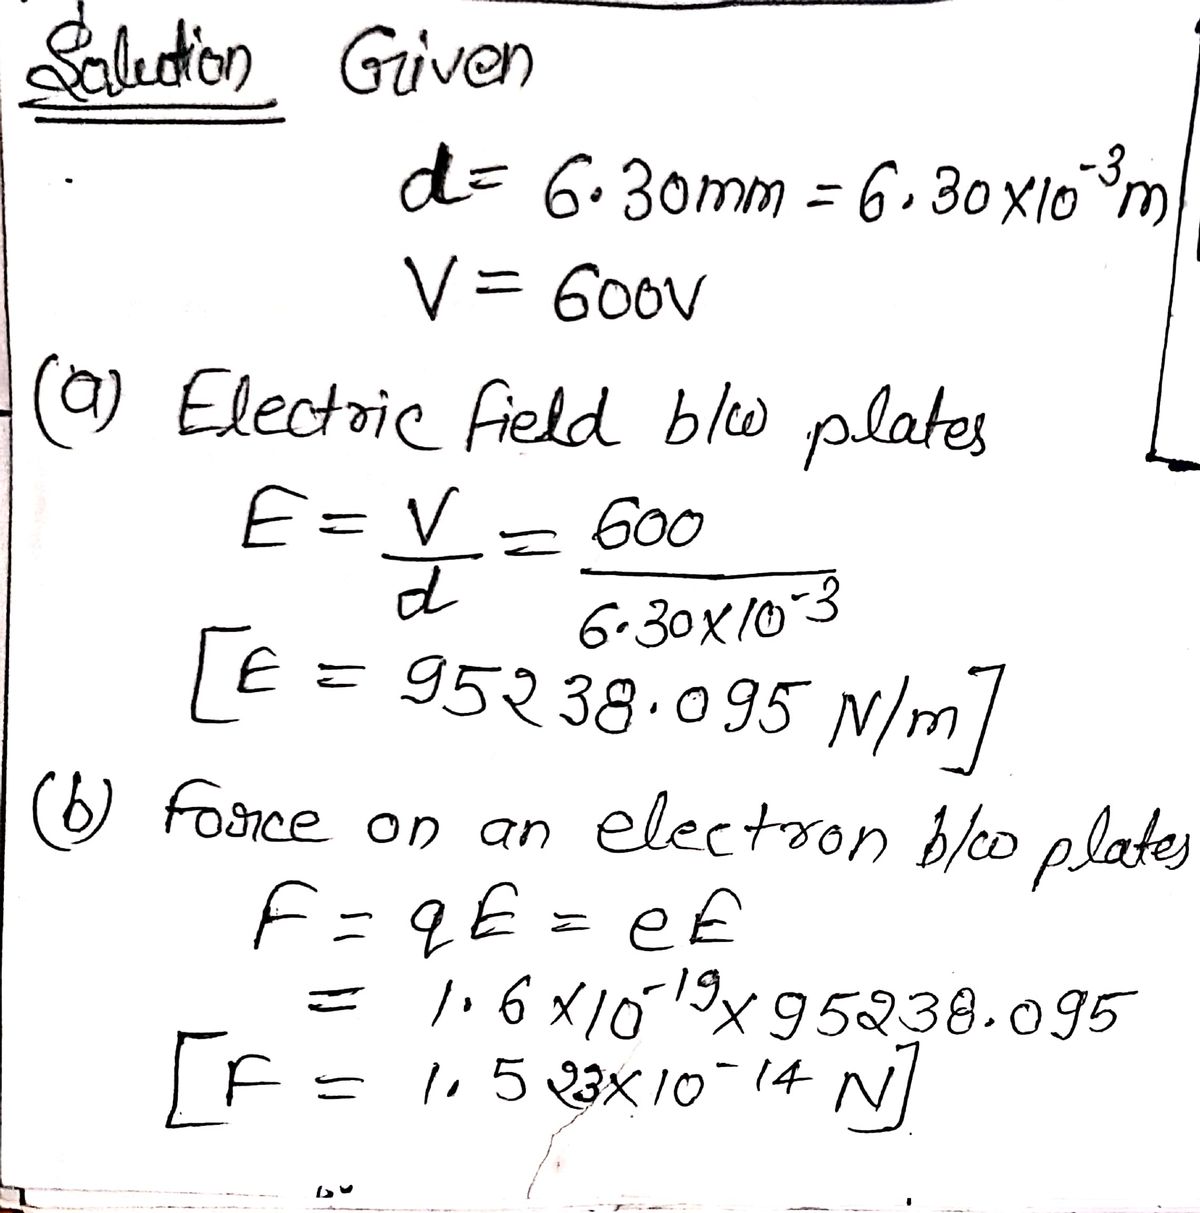 Solution Given
d = 6.30mm = 6.30×10⁻³m
V = 600V
(a) Electric field b/w plates
E = V/d = 600/6.30×10⁻³
[E = 95238.095 N/m]
(b) Force on an electron b/w plates
F = qE = eE
= 1.6×10⁻¹⁹×95238.095
[F = 1.523×10⁻¹⁴ N]